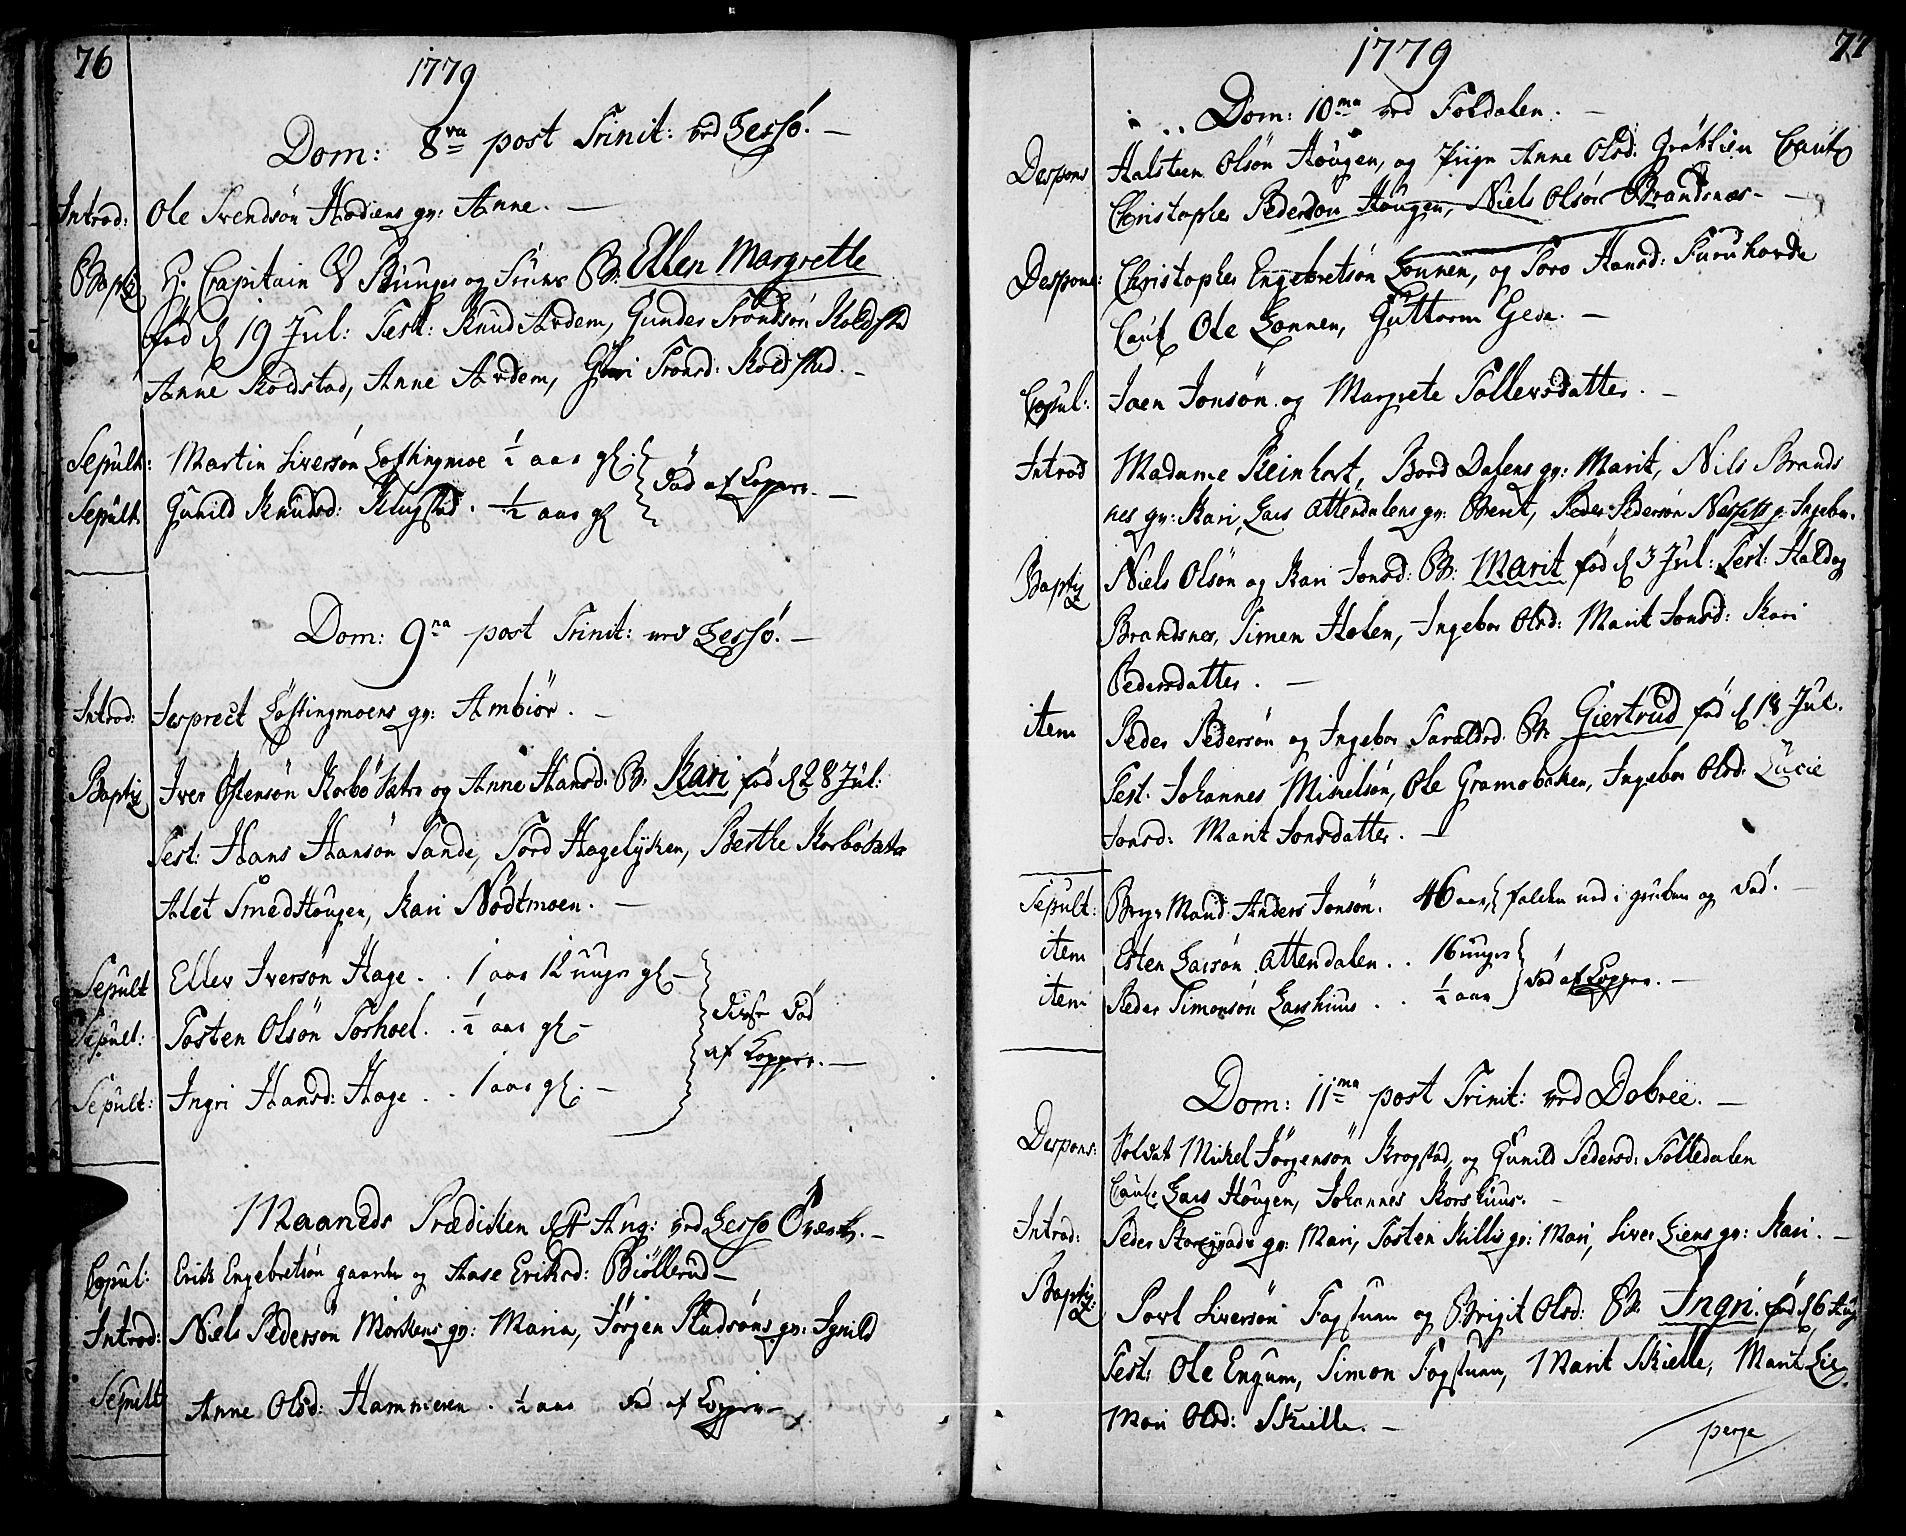 76
1779
Dom: 8va post Trinit: ved Lessø. —
Introd: Ole Svendsøn Hodiens qv: Anne. —
Baptiz H. Capitain og Frues B. Ellen Margrethe
fød d 19 Jul: Test: Knud Ardem, Gunder Trondsøn Koldstad
Anne Kodstad, Anne Ardem, Guri Tronsd: Koldsted. —
Sepult: Martin Siversøn Løftingmoe ½ aar gl.
Sepult. Gunild Knudsd: Klugstad. ½ aar gl død af Kopper. —
Dom: 9na post Trinit: ved Lessø. —
Introd: Jesprect Løftingmoens qv: Ambiør. —
Baptiz Iver Østensøn Korbøsætr og Anne Hansd: B. Kari fød d 28 Jul:
Test: Hans Hansøn Sande, Tord Hagelyken, Berthe Korbøsætr
Alet Smedhougen, Kari Nødtmoen. —
Sepult Ellev Iversøn Hage . . 1 aar 12 uuger gl —
Sepult: Tosten Olsøn Torhoel . . ½ aar gl — disse død
af Kopper. —
Sepult: Ingri Hansd: Hage . . 1 aar gl. —
Maaneds Prædiken Aug: ved Lessø Værk. —
Copul: Erik Engebretsøn gaarder og Aase Eriksd: Biøllerud —
Introd: Niels Pedersøn Morkens qv: Maria, Jørgen Kludsøns qv: Ignild
Sepult Anne Olsd: Hammeren . ½ aar død af Kopper —
77
1779
Dom: 10ma ved Foldalen. —
Despons Halsteen Olsøn Hougen, og Piign Anne Olsd: Grøtlien Caut
Christopher Pedersøn Hougen, Niels Olsøn Brandsnæs —
Despons: Christopher Engebretsøn Lonnen, og Toro Hansd: Furuhovde
Caut Ole Lonnen, Guttorm Gede. —
Copul: Joen Jonsøn og Margrete Tollevsdatter. —
Introd Madame Steinhort, Bord Dalens qv: Marit, Nils Brands
nes qv: Kari, Lars Attendalens qv: Berit, Peder Pedersøn Nessets q: Ingebor.
Baptiz Niels Olsøn og Kari Jonsd: B: Marit fød d 3 Jul: Test: Haldog
Brandsnes, Simen Holen, Ingebor Olsd: Marit Jonsd: Kari
Pedersdatter. —
item Peder Pedersøn og Ingebor Taraldsd. B. Giertrud fød d 18 Jul.
Test. Johannes Mikelsøn, Ole Gramobakken, Ingebor Olsd: Lucie
Jonsd: Marit Jonsdatter. —
Sepult: Berg Mand Anders Jonsøn. 46 aar falden ned i gruben og død. —
item Esten Larsøn Attendalen . . 16 uuger
item Peder Simonsøn Larshuus . . ½ aar død af Kopper. —
Dom: 11ma post Trinit: ved Dobree. —
Despons: Soldat Mikel Jørgensøn Krogstad, og Gunild Pedersd: Folledalen
Caut: Lars Hougen, Johannes Korshuus. —
Introd: Peder Storrgards qv: Mari, Tosten Killis qv: Mari, Siver Liens qv: Kari. —
Baptiz: Povl Siversøn Fogstuen og Brigit Olsd: B. Ingri. fød d 6 Aug
Test: Ole Engum, Simon Fogstuen, Marit Skielle, Marit Lie
Mari Olsd: Skielle. —
perge